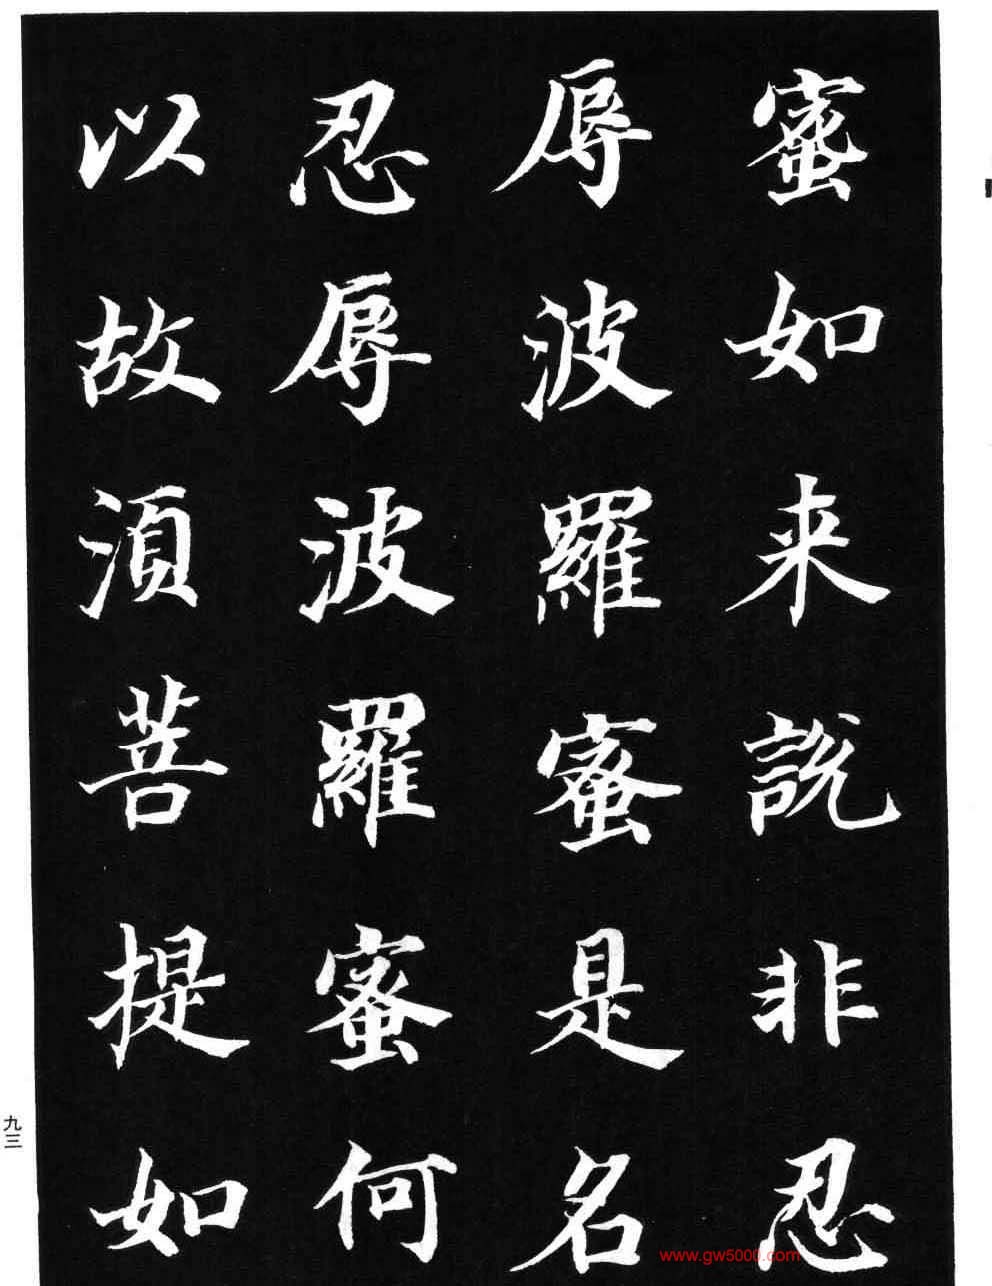 蜜如来說非忍
辱波羅蜜是名
忍辱波羅蜜何
以故湏菩提如
九三
www.gw5000.com